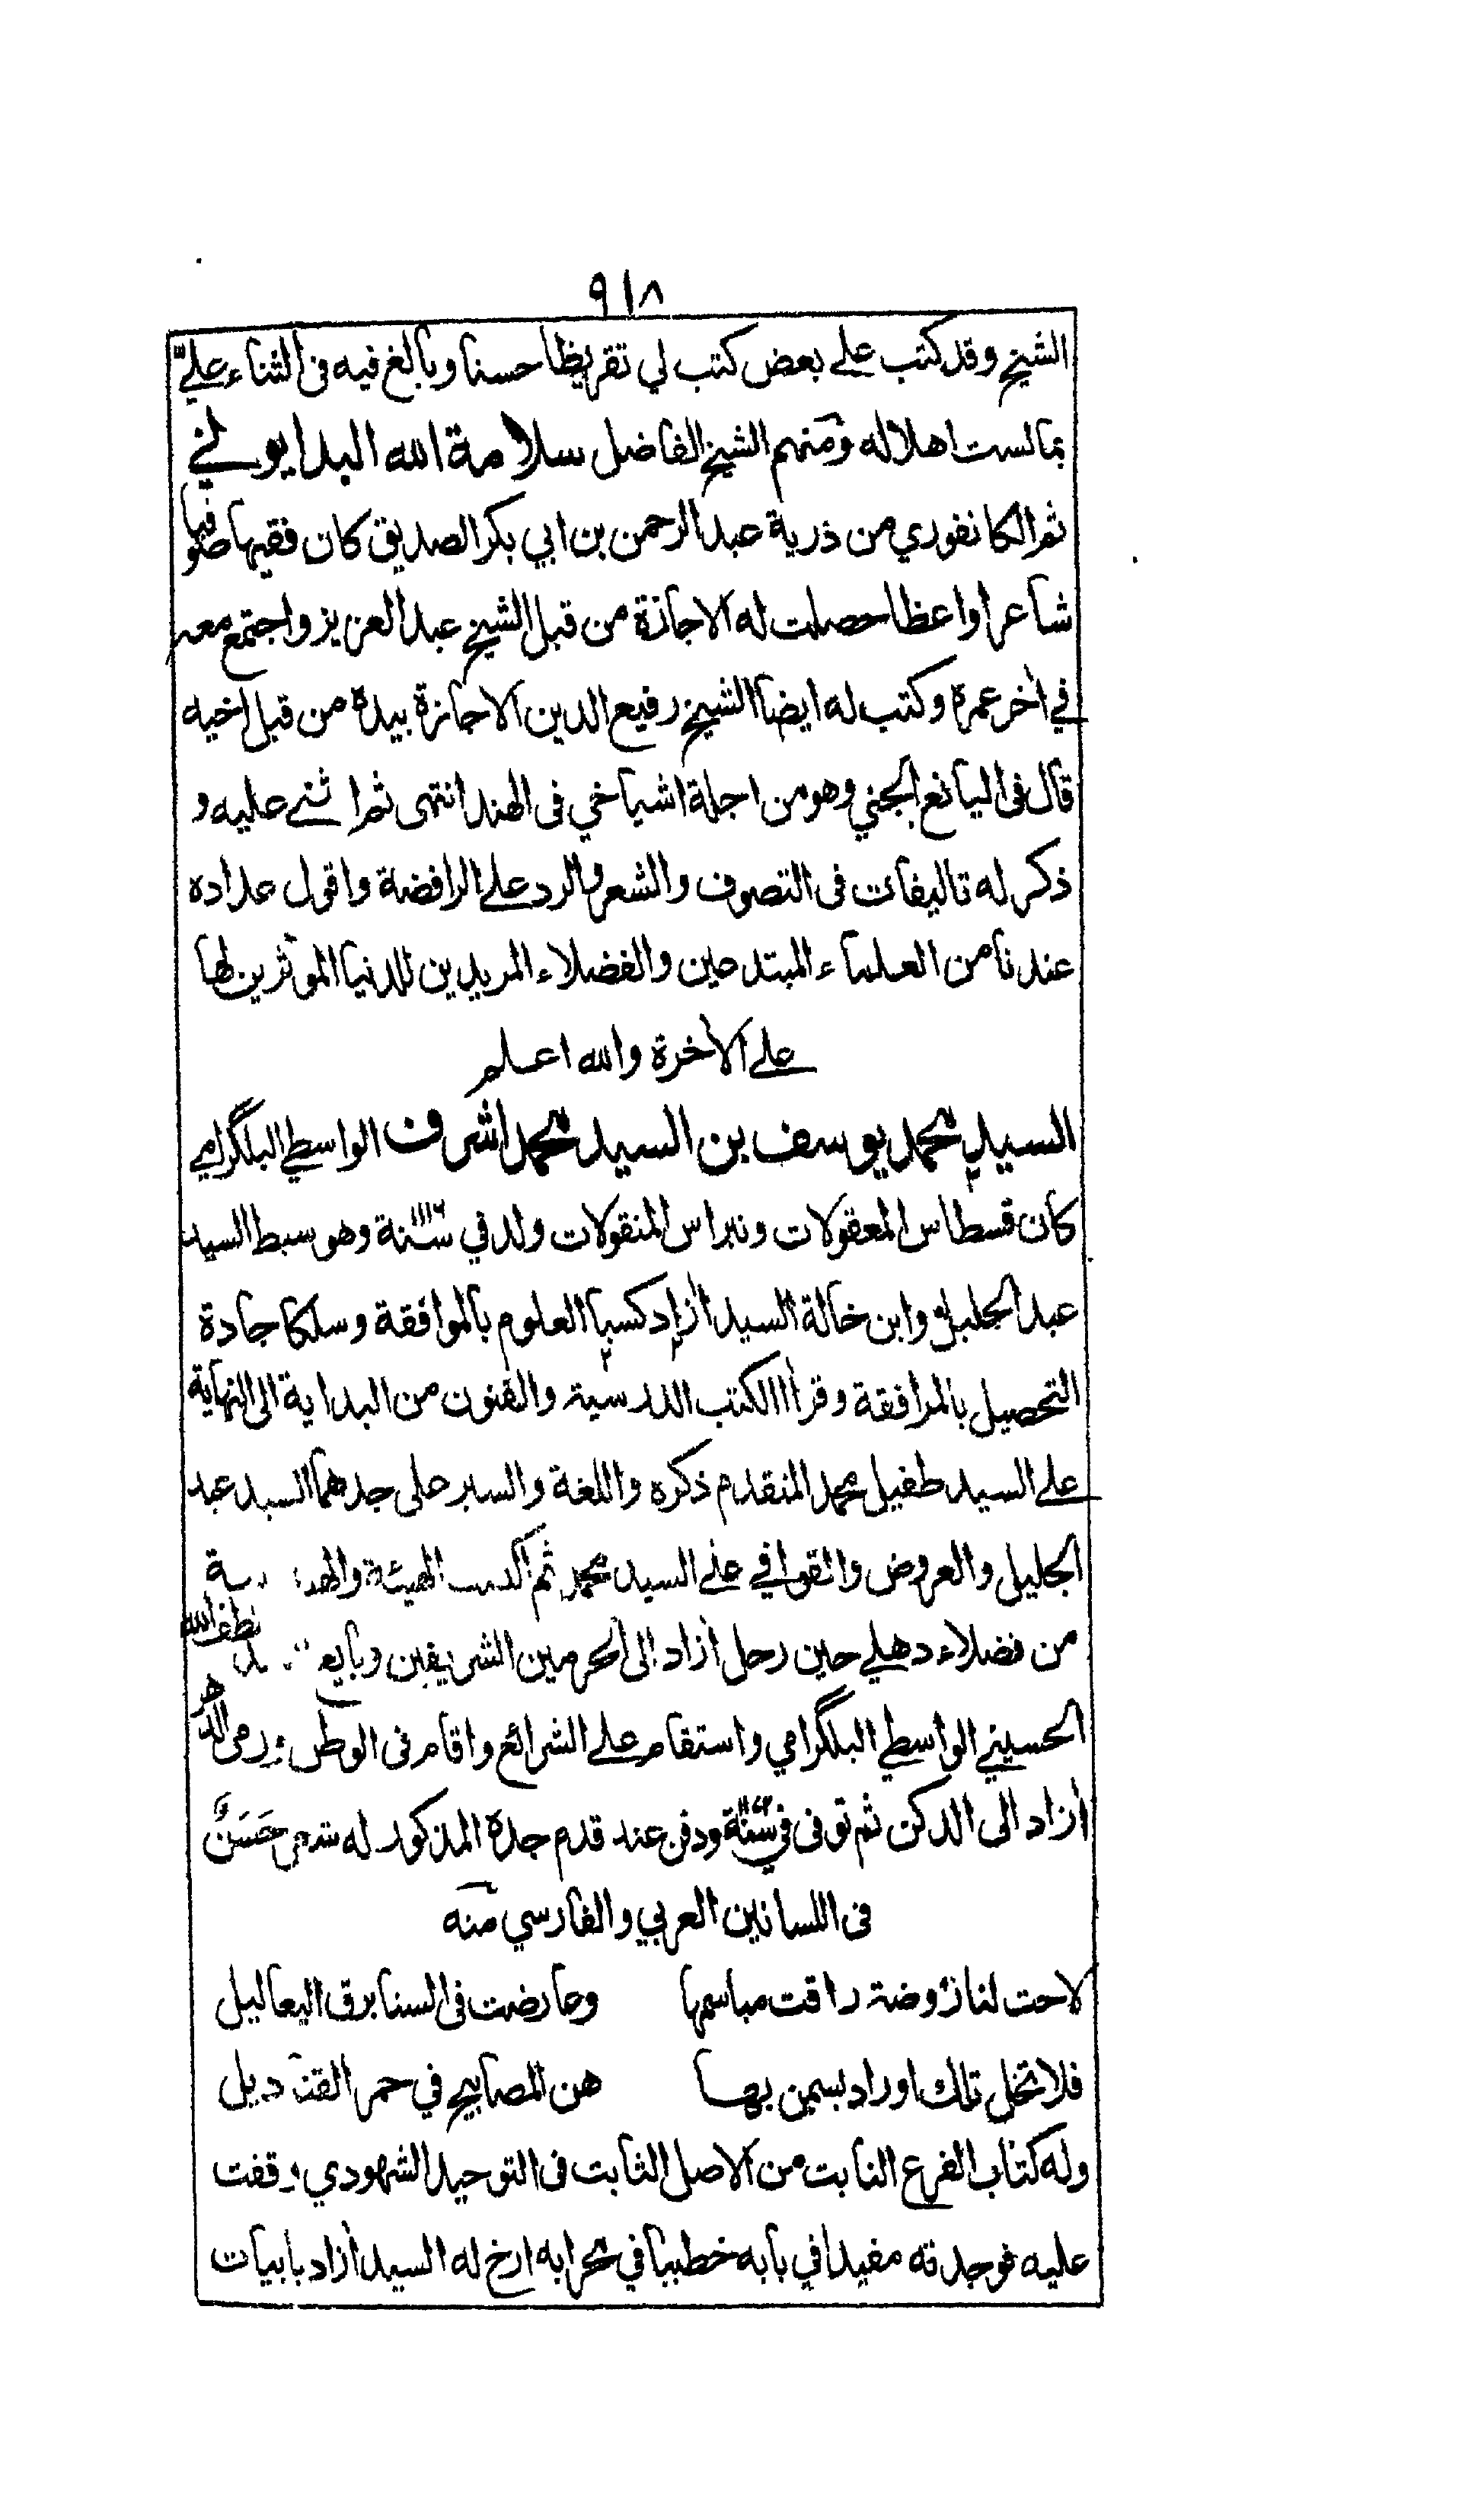 ٩١٨
الشيخ وقد كتب علے بعض كتب لي تقريظا حسنا وبالغ فيه فی الثناء علیّ
بمالست اهلا له ومنهم الشيخ الفاضل سلامة الله البدايونے
ثم الكانفوري من ذرية عبد الرحمن بن ابي بكر الصديق كان فقيها صوفيا
شاعرا واعظا حصلت له الاجازة من قبل الشيخ عبد العزيز واجتمع معه
في أخر عمرة وكتب له ايضا الشيخ رفيع الدين الاجازة بيدة من قبل اخيه
قال فی اليانع الجني وهو من اجلة اشياخي فی الهند انتهى ثم اثنے عليه و
ذكر له تاليفات فی التصوف والشعر والرد علے الرافضة واقول عداده
عندنا من العلماء المبتدعين والفضلاء المريدين للدنيا المؤثرين لها
علے الأخرة والله اعلم
السيد محمد يوسف بن السيد محمد اشرف الواسطي البلگرامي
كان قسطاس المعقولات ونبراس المنقولات ولد في سنة وهو سبط السيد
عبد الجليل وابن خالة السيد أزاد كسبا العلوم بالموافقة وسلكا جادة
التحصيل بالمرافقة وقرأا الكتب الدرسية والفنون من البداية الی النهاية
علے السيد طفيل محمد المتقدم ذكره واللغة والسير علی جدهما السيد عبد
الجليل والعروض والقوافي علے السيد محمد ثم الهيئة
من فضلاء دهلے حين رحل أزاد الی الحرمين الشريفين وبايع لطف الله
الحسيني الواسطي البلگرامي واستقام علے الشرائع واقام فی الوطن ورمی الدهر
أزاد الی الدكن ثم توفی في سنة ودفن عند قدم جدة المذكور له شعر حَسَنٌ
فی اللسانين العربي والفارسي منه
لاحت لنا روضة راقت مباسمها وعارضت فی السنا برق اليعاليل
فلا تخل تلك اوراد بسمن بها هن المصابيح في حمر القناديل
وله كتاب الفرع النابت من الاصل الثابت فی التوحيد الشهودي وقفت
عليه فوجدته مفيدا في بابه خطيبا في محرابه ارخ له السيد أزاد بابيات